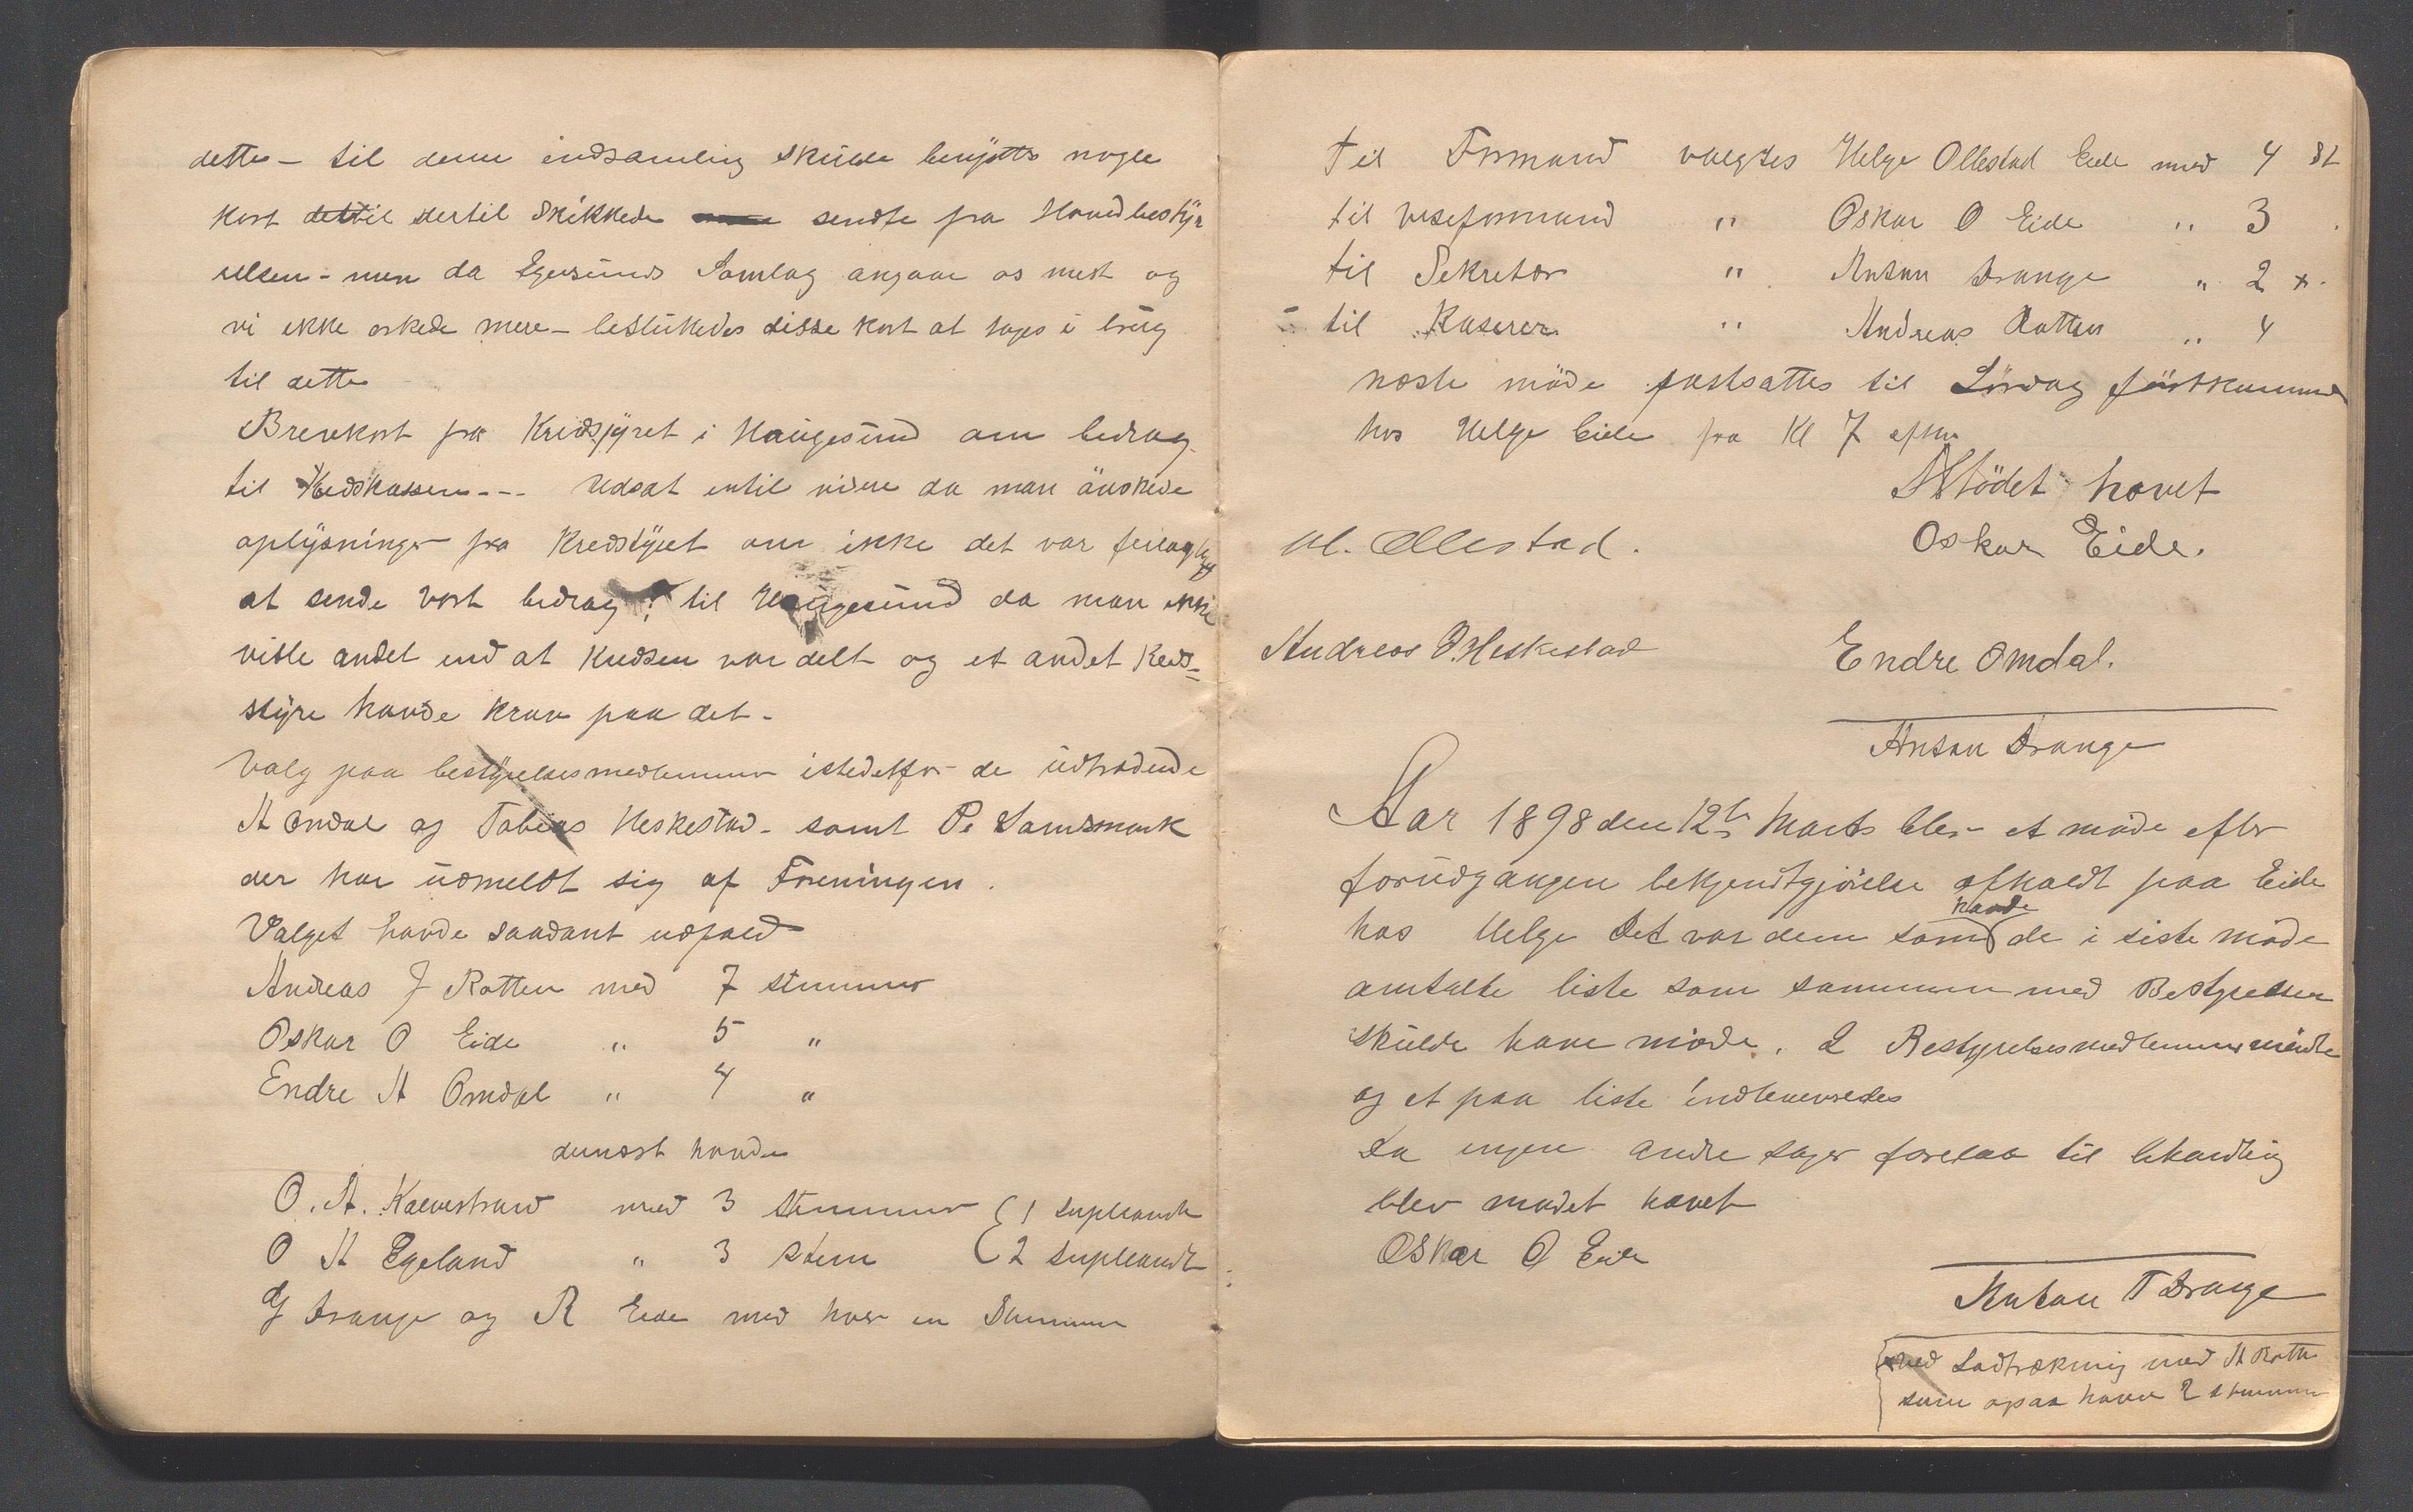 dette - til denne indsamling skulde benyttes nogle
kort dettil dertil skikkede sendte fra Hovedbestyr
elsen - men da Egersunds Samlag angaar os mest og
vi ikke orkede mere - besluttedes disse kort at tages i brug
til dette
Brevkort fra Kredsstyret i Haugesund om bedrag
til Kredskassen --- Udsat intil videre da man önskede
oplysninger fra Kredstyret om ikke det var feilagtig
at sende vort bedrag til Haugesund da man ikke
viste andet end at Kredsen var delt og et andet Kreds-
styre havde krav paa det -
Valg paa bestyrelsesmedlemmer istedetfor de udtrædende
A Omdal og Tobias Heskestad - samt P. Landsmark
der har udmeldt sig af Foreningen.
Valget havde saadant udfald
Andreas J Rotten med 7 stemmer
Oskar O Eide " 5 "
Endre A Omdal " 4 "
dernæst havde
O. A. Kalvestrand med 3 stemmer { 1 supleandt
O A Egeland " 3 stem { 2 supleandt
G Drange og R Eide med hver en Stemmer
til Formand valgtes Helge Ollestad Eide med 4 St
til viseformand " Oskar O Eide " 3
til Sekretær " Anton Drange " 2 x.
til Kaserer " Andreas Rotten " 4
næste möde fastsattes til Lördag förstkommende
hos Helge Eide fra Kl 7 efter
Mödet hævet
H. Ollestad. Oskar Eide.
Andreas O. Heskestad Endre Omdal.
Anton Drange
Aar 1898 den 12te Marts blev et möde efter
forudgangen bekjendtgjörelse afholdt paa Eide
havde
hos Helge Det var dem som de i siste möde
omtalte liste som sammen med Bestyrelsen
skulde have möde. 2 Bestyrelsesmedlemmer mödte
og et paa liste indleveredes
Da ingen andre sager forelaa til behandling
blev mödet hævet
Oskar O Eide
Anton T Drange
x ved Lodtrækning med A Rotten
som opaa havde 2 stemmer